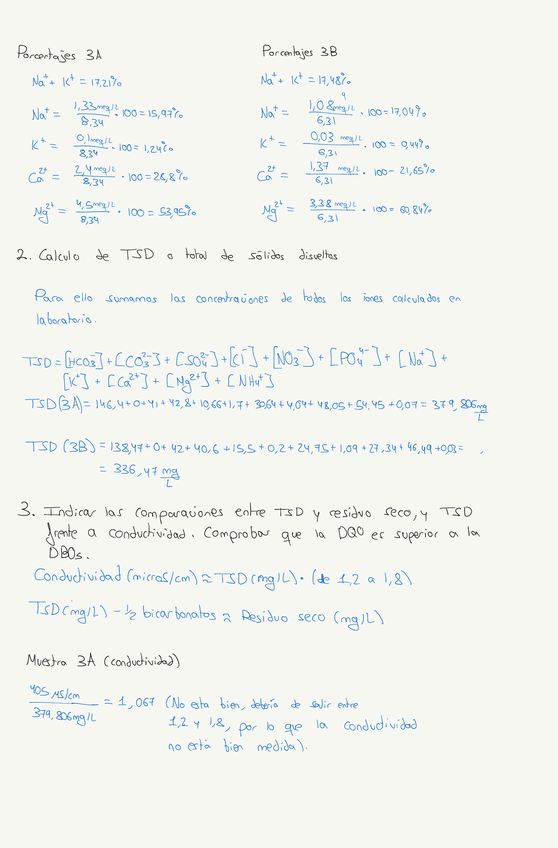 Porcentajes 3A
Na⁺ + K⁺ = 17,21%
Na⁺ = 1,33 meq/L / 8,34 · 100 = 15,97%
K⁺ = 0,1 meq/L / 8,34 · 100 = 1,24%
Ca²⁺ = 2,4 meq/L / 8,34 · 100 = 28,8%
Mg²⁺ = 4,5 meq/L / 8,34 · 100 = 53,95%
Porcentajes 3B
Na⁺ + K⁺ = 17,48%
Na⁺ = 1,08 meq/L / 6,31 · 100 = 17,04%
K⁺ = 0,03 meq/L / 6,31 · 100 = 0,44%
Ca²⁺ = 1,37 meq/L / 6,31 · 100 - 21,65%
Mg²⁺ = 3,38 meq/L / 6,31 · 100 = 60,84%
2. Calculo de TSD o total de sólidos disueltos
Para ello sumamos las concentraciones de todos los iones calculados en
laboratorio.
TSD = [HCO₃⁻] + [CO₃²⁻] + [SO₄²⁻] + [Cl⁻] + [NO₃⁻] + [PO₄⁴⁻] + [Na⁺] +
[K⁺] + [Ca²⁺] + [Mg²⁺] + [NH₄⁺]
TSD (3A) = 146,4+0+41+42,8+10,66+1,7+30,64+4,04+48,05+54,45+0,07 = 379,806 mg/L
TSD (3B) = 138,47+0+42+40,6+15,5+0,2+24,75+1,09+27,34+46,49+0,03 =
= 336,47 mg/L
3. Indicar las comparaciones entre TSD y residuo seco, y TSD
frente a conductividad. Comprobar que la DQO es superior a la
DBO₅.
Conductividad (micros/cm) ≈ TSD (mg/L) · (de 1,2 a 1,8)
TSD (mg/L) - ½ bicarbonatos ≈ Residuo seco (mg/L)
Muestra 3A (conductividad)
405 µS/cm / 379,806 mg/L = 1,067 (No esta bien, debería de salir entre
1,2 y 1,8, por lo que la conductividad
no está bien medida).